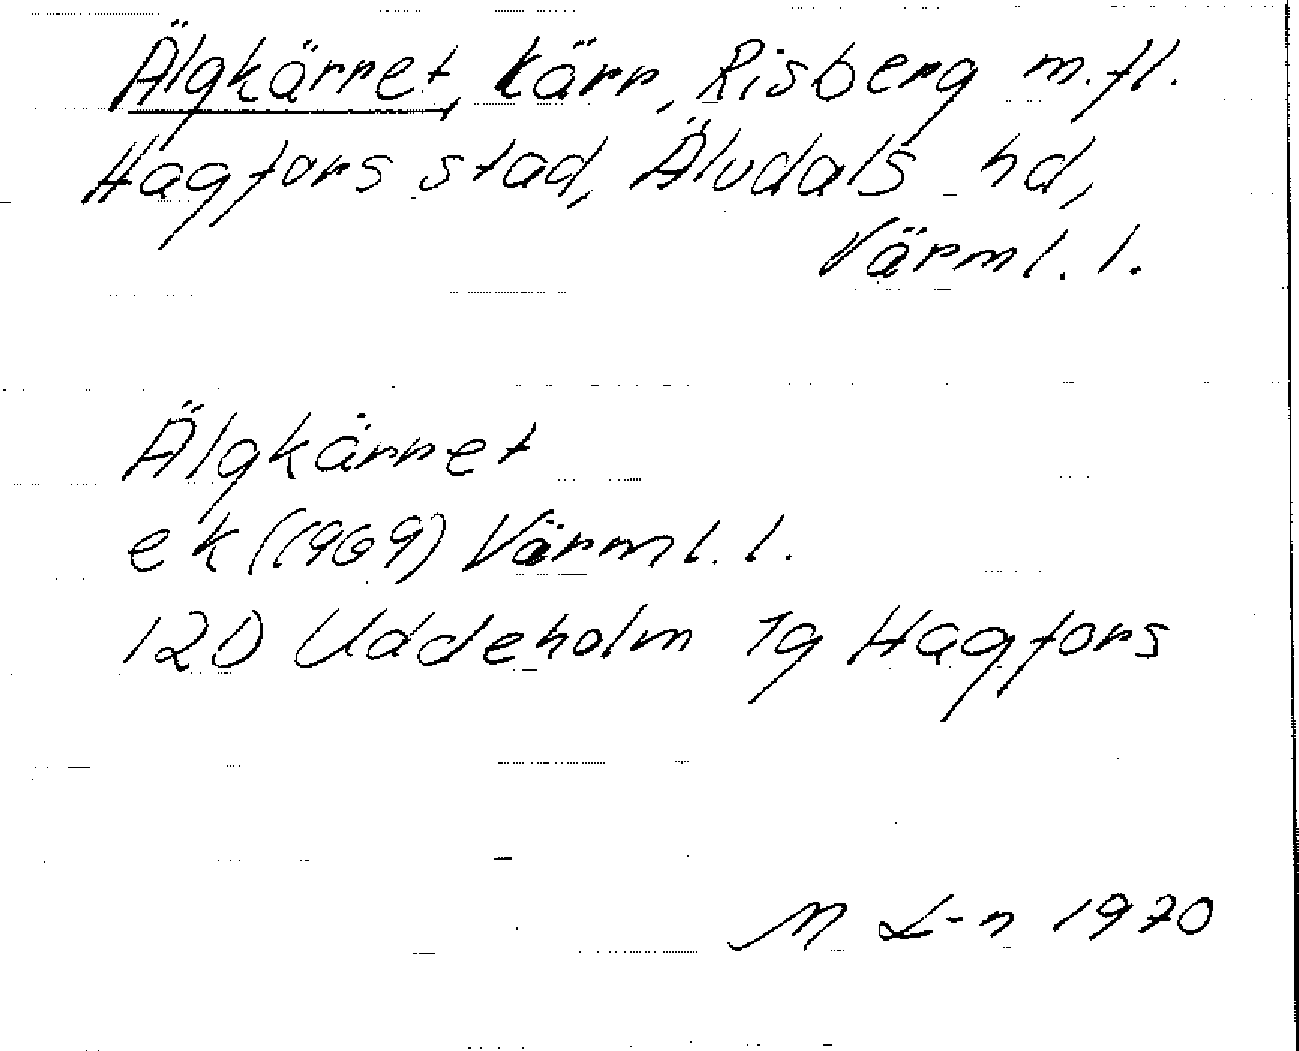 Älgkärret, kärr, Risberg m.fl.
Hagfors stad, Älvdals hd,
Värml. l.
Älgkärret
ek (1969) Värml. l.
12D Uddeholm 1g Hagfors
M L-n 1970